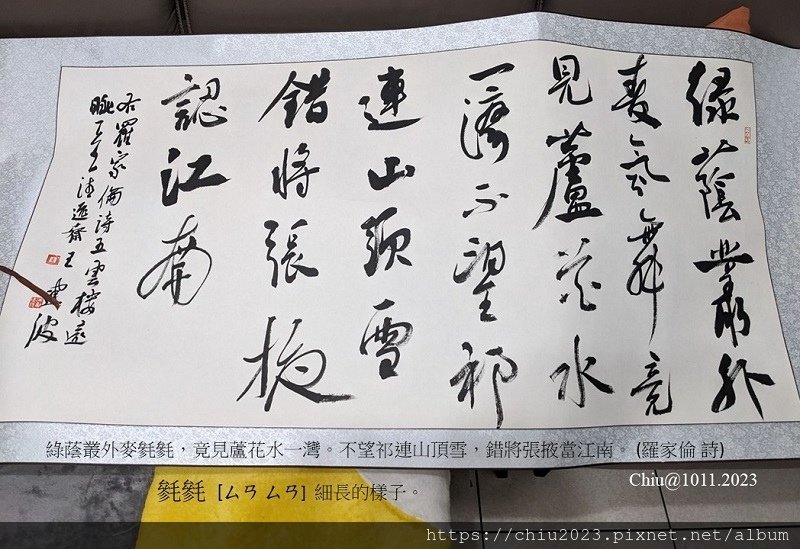 綠蔭叢外
麥 竟
見蘆花水
一灣不望祁
連山頂雪
錯將張掖
認江南
右羅家倫詩五雲樓遠
眺 王
綠蔭叢外麥毿毿,竟見蘆花水一灣。不望祁連山頂雪,錯將張掖當江南。(羅家倫 詩)
Chiu@1011.2023
毿毿 [ㄙㄢ ㄙㄢ] 細長的樣子。
https://chiu2023.pixnet.net/album